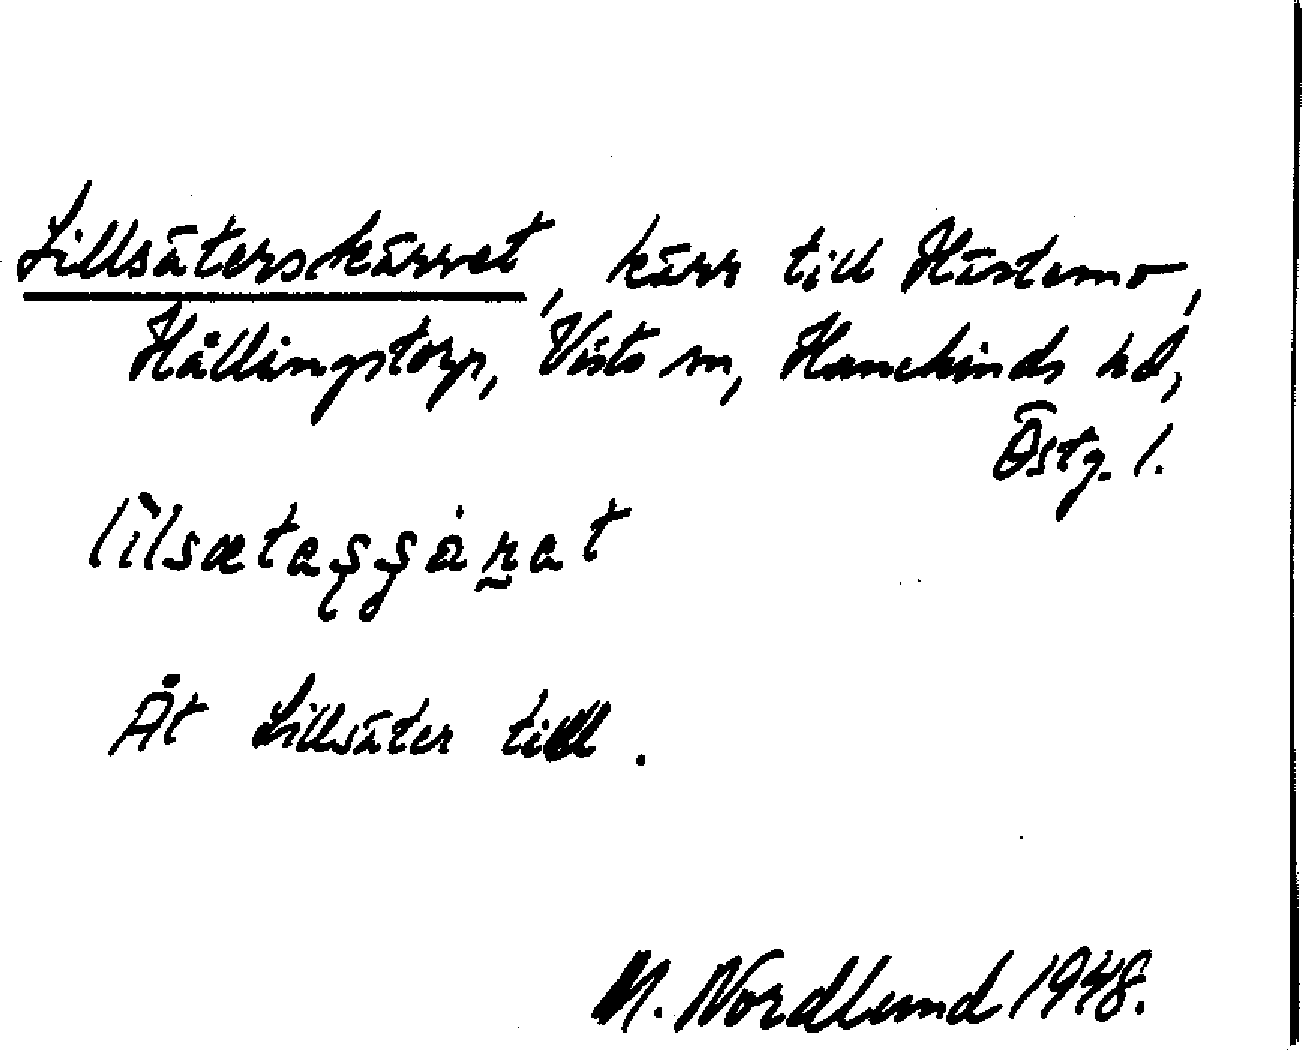 Lillsäterskärret, kärr till Hästemo,
Hållingstorp, Västo sn, Hanekinds hd,
Östg. l.
Åt Lillsäter till.
M. Nordlund 1948.